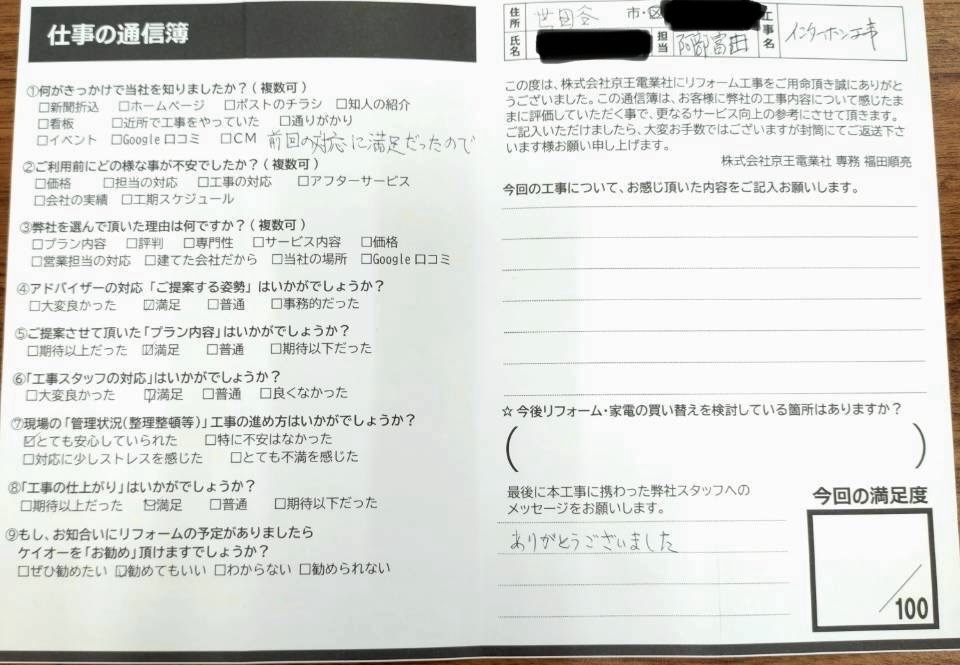 仕事の通信簿
①何がきっかけで当社を知りましたか？(複数可)
□新聞折込 □ホームページ □ポストのチラシ □知人の紹介
□看板 □近所で工事をやっていた □通りがかり
□イベント □Google口コミ □CM 前回の対応に満足だったので
②ご利用前にどの様な事が不安でしたか？(複数可)
□価格 □担当の対応 □工事の対応 □アフターサービス
□会社の実績 □工期スケジュール
③弊社を選んで頂いた理由は何ですか？(複数可)
□プラン内容 □評判 □専門性 □サービス内容 □価格
□営業担当の対応 □建てた会社だから □当社の場所 □Google口コミ
④アドバイザーの対応「ご提案する姿勢」はいかがでしょうか？
□大変良かった ☑満足 □普通 □事務的だった
⑤ご提案させて頂いた「プラン内容」はいかがでしょうか？
□期待以上だった ☑満足 □普通 □期待以下だった
⑥「工事スタッフの対応」はいかがでしょうか？
□大変良かった ☑満足 □普通 □良くなかった
⑦現場の「管理状況(整理整頓等)」工事の進め方はいかがでしょうか？
☑とても安心していられた □特に不安はなかった
□対応に少しストレスを感じた □とても不満を感じた
⑧「工事の仕上がり」はいかがでしょうか？
□期待以上だった ☑満足 □普通 □期待以下だった
⑨もし、お知合いにリフォームの予定がありましたら
ケイオーを「お勧め」頂けますでしょうか？
□ぜひ勧めたい ☑勧めてもいい □わからない □勧められない
住所 世田谷 市・区
氏名 担当 阿部富由
工事名 インターホン工事
この度は、株式会社京王電業社にリフォーム工事をご用命頂き誠にありがと
うございました。この通信簿は、お客様に弊社の工事内容について感じたま
まに評価していただく事で、更なるサービス向上の参考にさせて頂きます。
ご記入いただけましたら、大変お手数ではございますが封筒にてご返送下さ
います様お願い申し上げます。
株式会社京王電業社 専務 福田順亮
今回の工事について、お感じ頂いた内容をご記入お願いします。
☆今後リフォーム・家電の買い替えを検討している箇所はありますか？
( )
最後に本工事に携わった弊社スタッフへの
メッセージをお願いします。
ありがとうございました
今回の満足度
/100